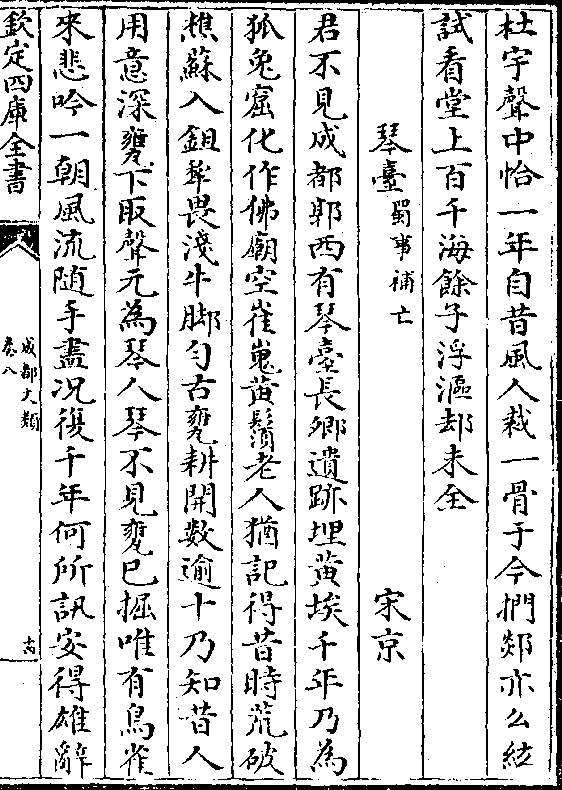 杜宇聲中怡一年自昔風人裁一骨于今捫燚亦么絃
試看堂上百千海餘子浮漚却未全
琴臺蜀事補亡 宋京
君不見成都郭西有琴臺長卿遺跡埋黄埃千年乃為
狐兎窟化作佛廟空崔嵬黄鬚老人猶記得昔時荒破
樵蘇入鉏犂畏淺牛脚匀古甕耕開數逾十乃知昔人
用意深甕下取聲元為琴人琴不見甕已掘唯有鳥雀
來悲吟一朝風流随手盡况復千年何所訊安得雄辭
欽定四庫全書
成都文類
卷八
十四